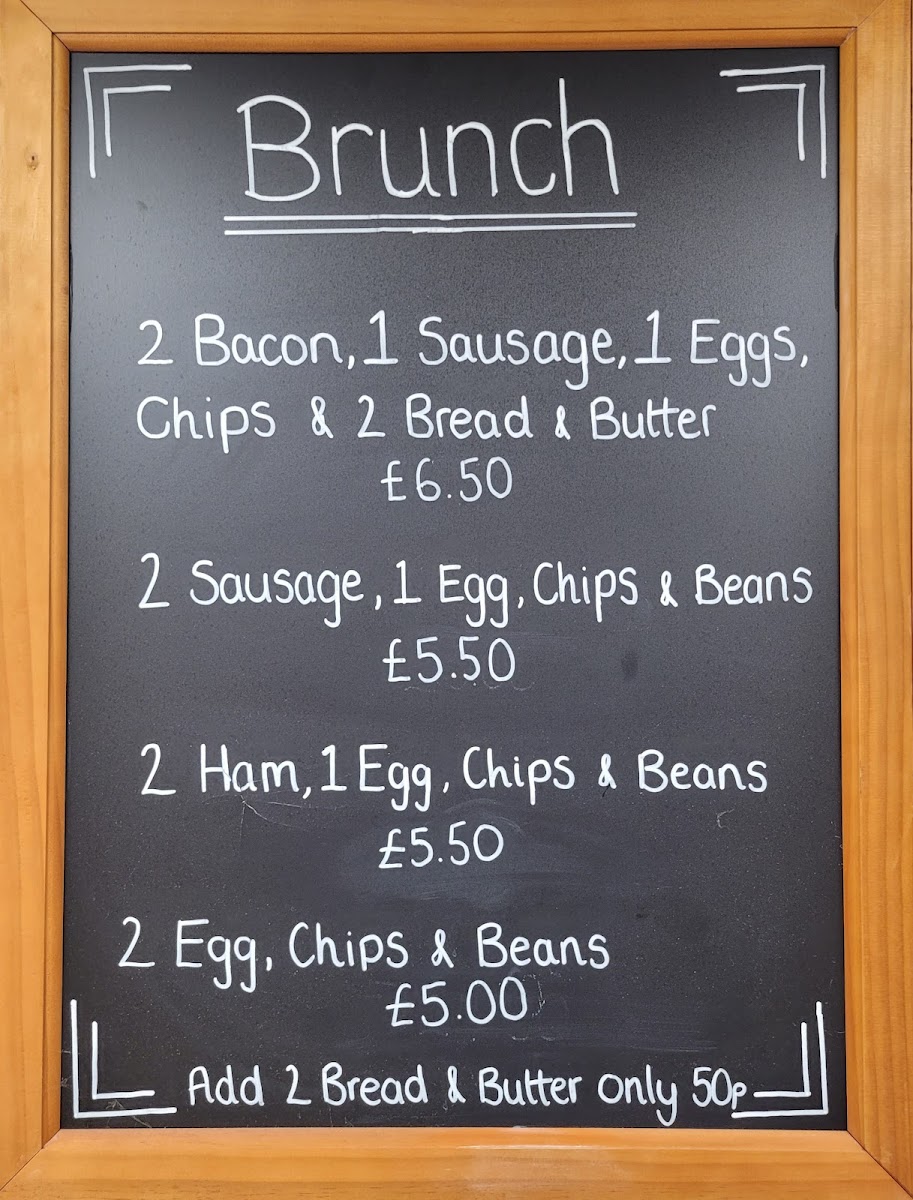 Brunch
2 Bacon, 1 Sausage, 1 Eggs,
Chips & 2 Bread & Butter
£6.50
2 Sausage, 1 Egg, Chips & Beans
£5.50
2 Ham, 1 Egg, Chips & Beans
£5.50
2 Egg, Chips & Beans
£5.00
Add 2 Bread & Butter only 50p